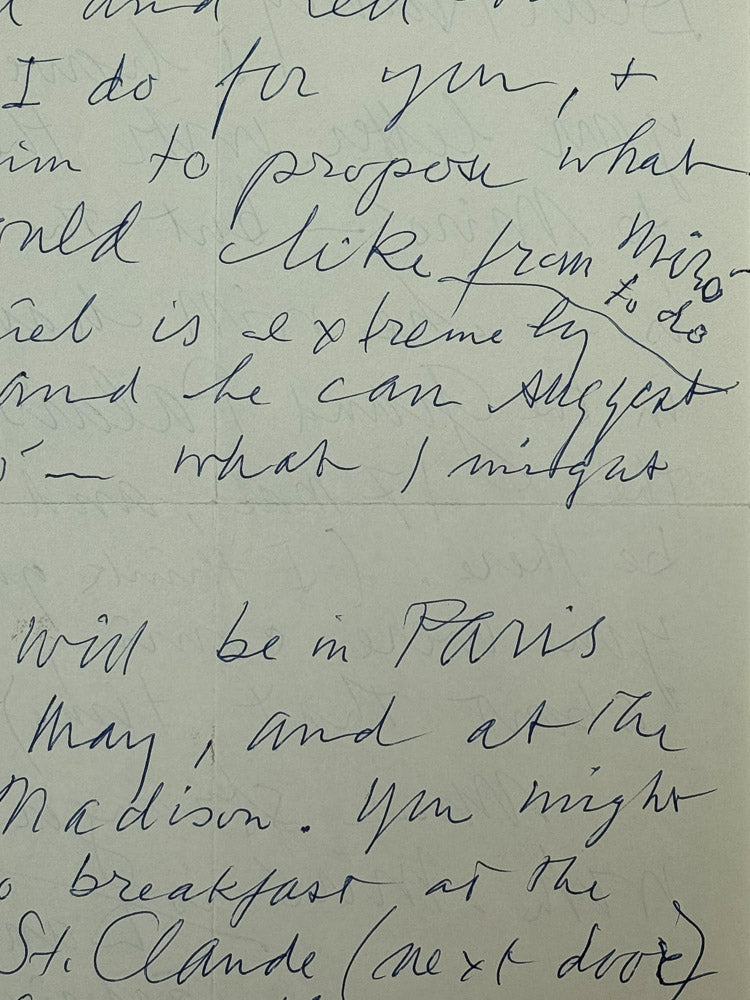 and
I do for you, +
im to propose what
ould like from Miro -
to do
iel is extremely
and he can suggest
ó — what I might
will be in Paris
May, and at the
Madison. You might
o breakfast at the
St. Claude (next door)